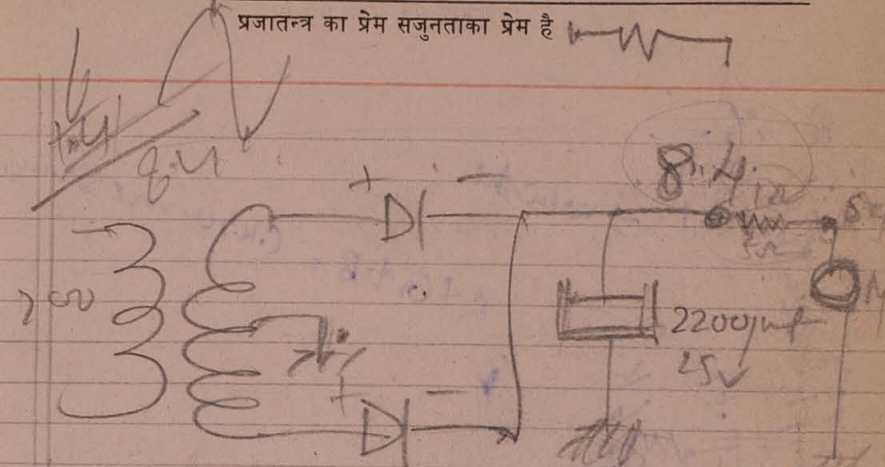 प्रजातन्त्र का प्रेम सजुनताका प्रेम है
8.4
+ -
8.4
200
2200μf
25v
+ -
M